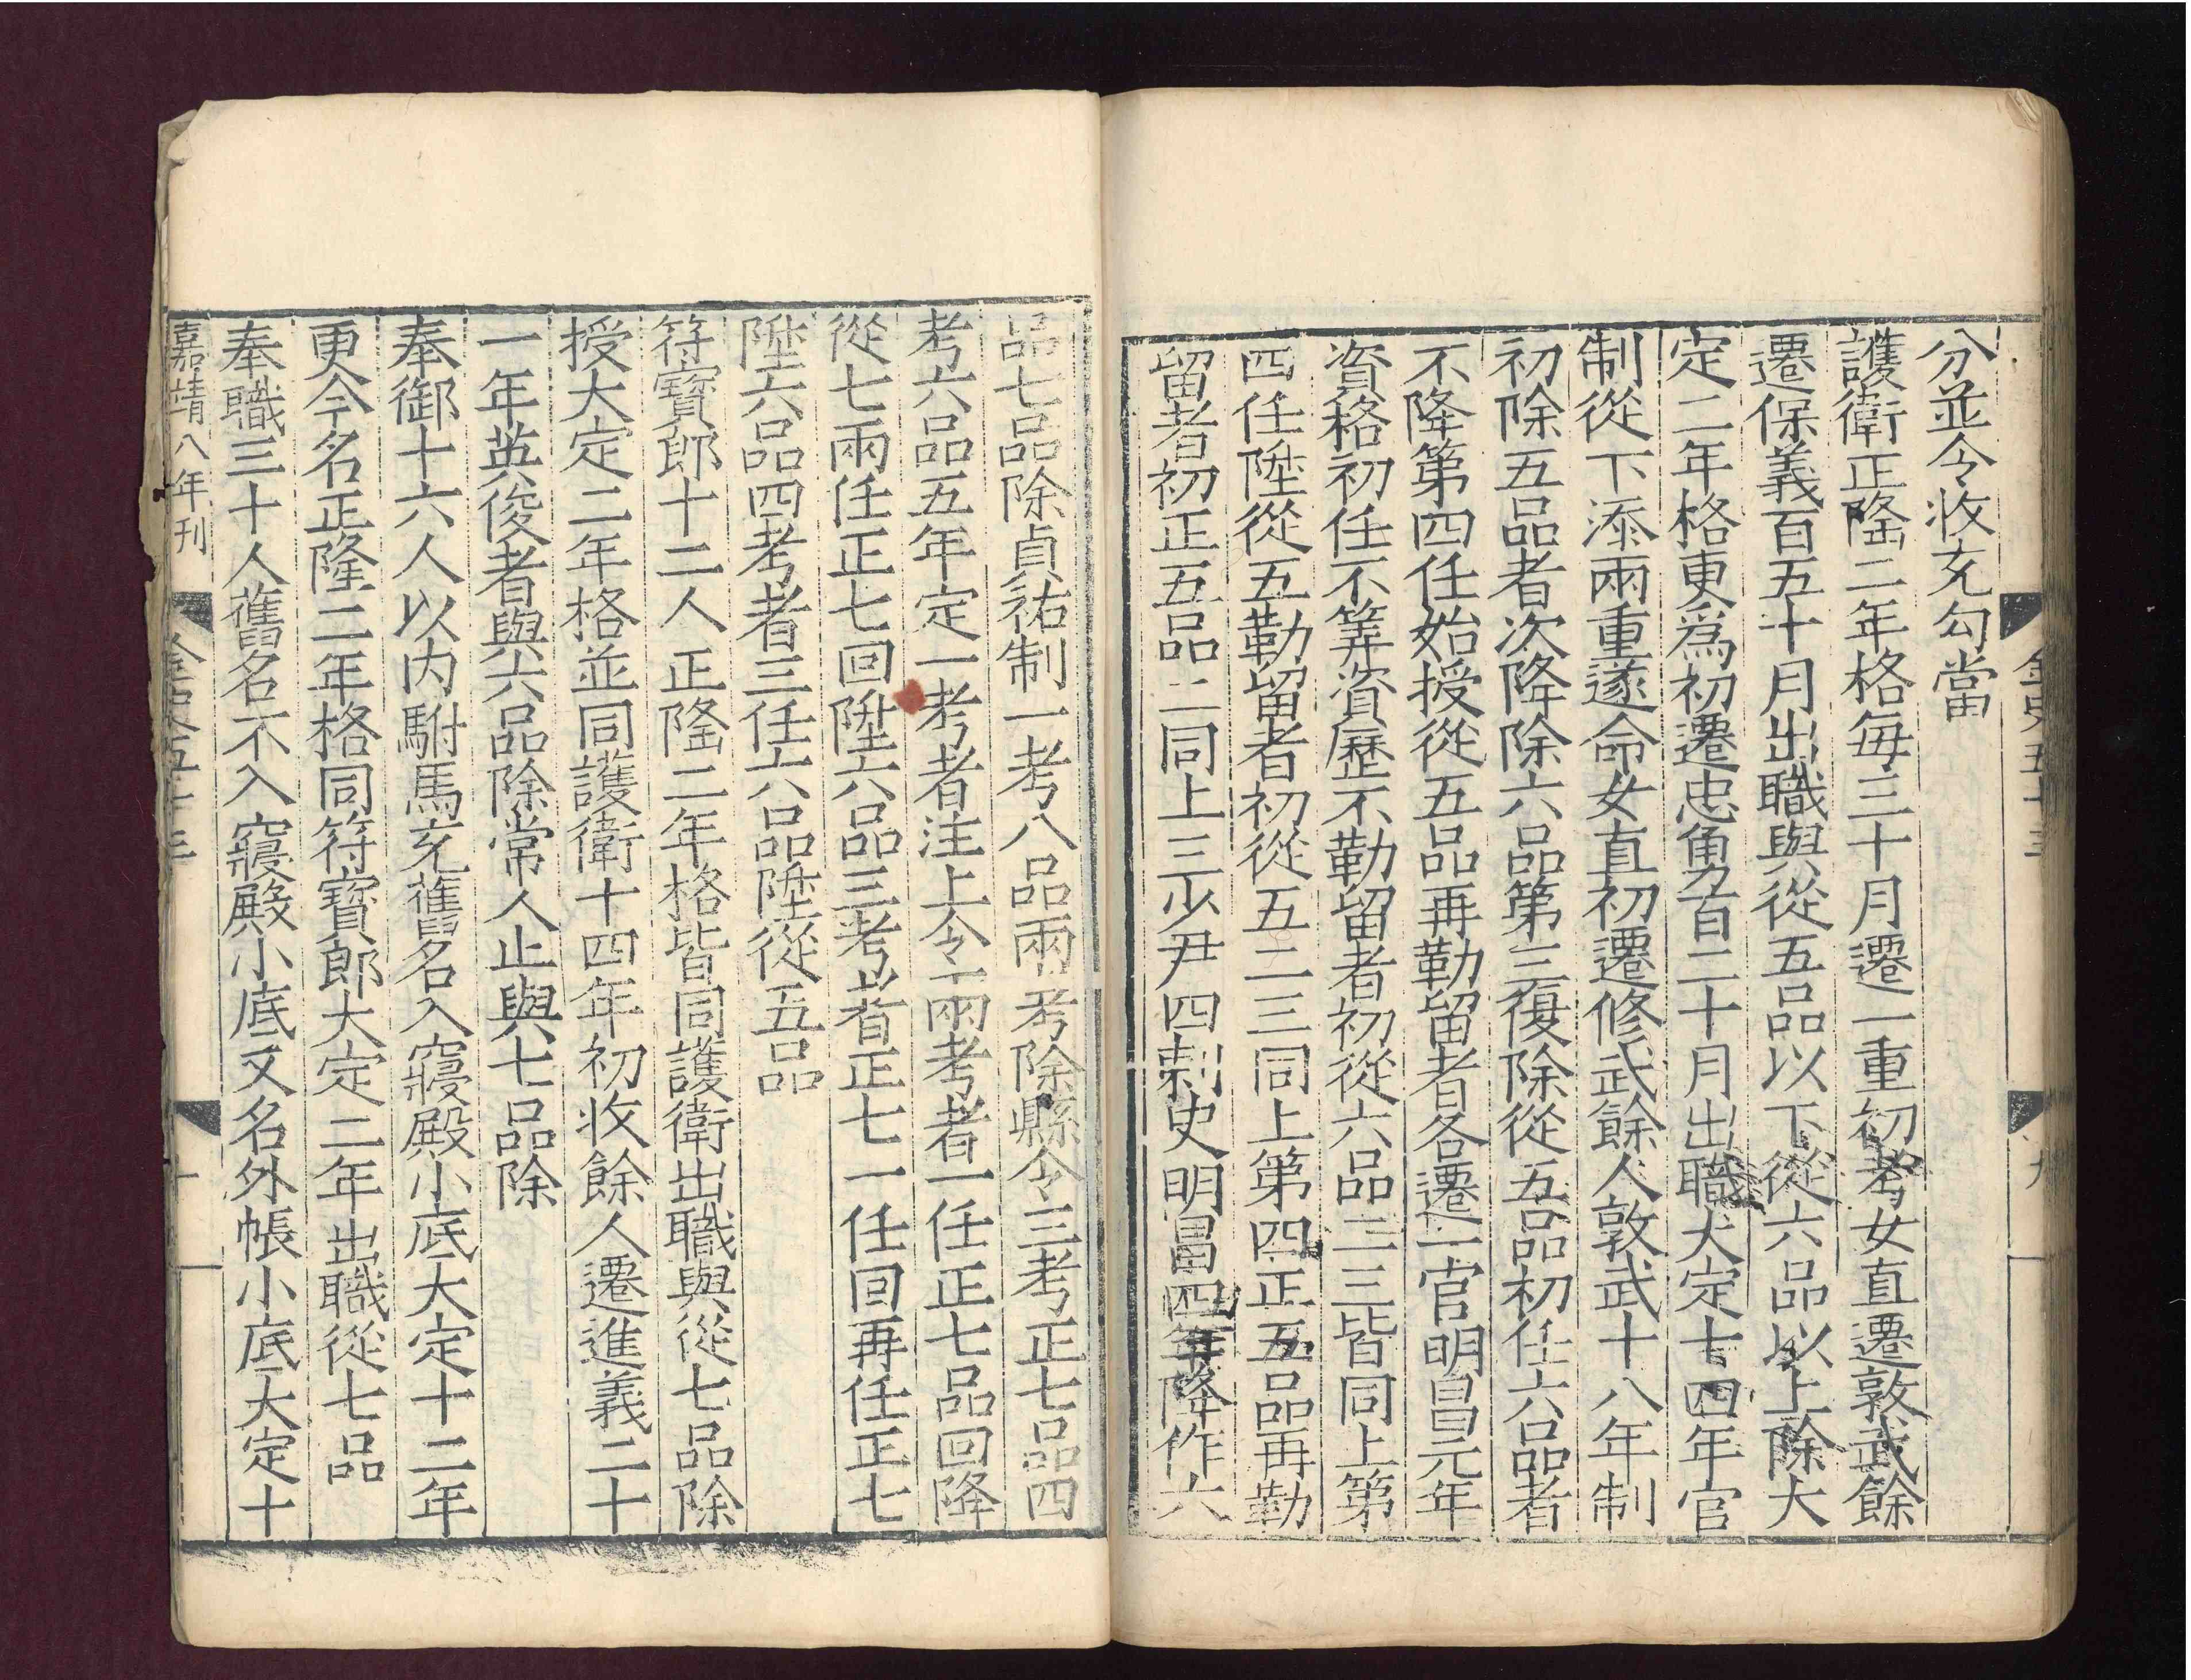 金史五十三
九
分並令收充勾當
護衛正隆二年格每三十月遷一重初考女直遷敦武餘
遷保義百五十月出職與從五品以下從六品以上除大
定二年格更爲初遷忠勇百二十月出職大定十四年官
制從下添兩重遂命女直初遷修武餘人敦武十八年制
初除五品者次降除六品第三復除從五品初任六品者
不降第四任始授從五品再勒留者各遷一官明昌元年
資格初任不筭資歷不勒留者初從六品二三皆同上第
四任陞從五勒留者初從五二三同上第四正五品再勒
留者初正五品二同上三少尹四刺史明昌四年降作六
品七品除貞祐制一考八品兩考除縣令三考正七品四
考六品五年定一考者注上令兩考者一任正七品回降
從七兩任正七回陞六品三考者正七一任回再任正七
陞六品四考者三任六品陞從五品
符寶郎十二人正隆二年格皆同護衛出職與從七品除
授大定二年格並同護衛十四年初收餘人遷進義二十
一年英俊者與六品除常人止與七品除
奉御十六人以内駙馬充舊名入寢殿小底大定十二年
更今名正隆二年格同符寶郎大定二年出職從七品
奉職三十人舊名不入寢殿小底又名外帳小底大定十
嘉靖八年刊
金史五十三
十